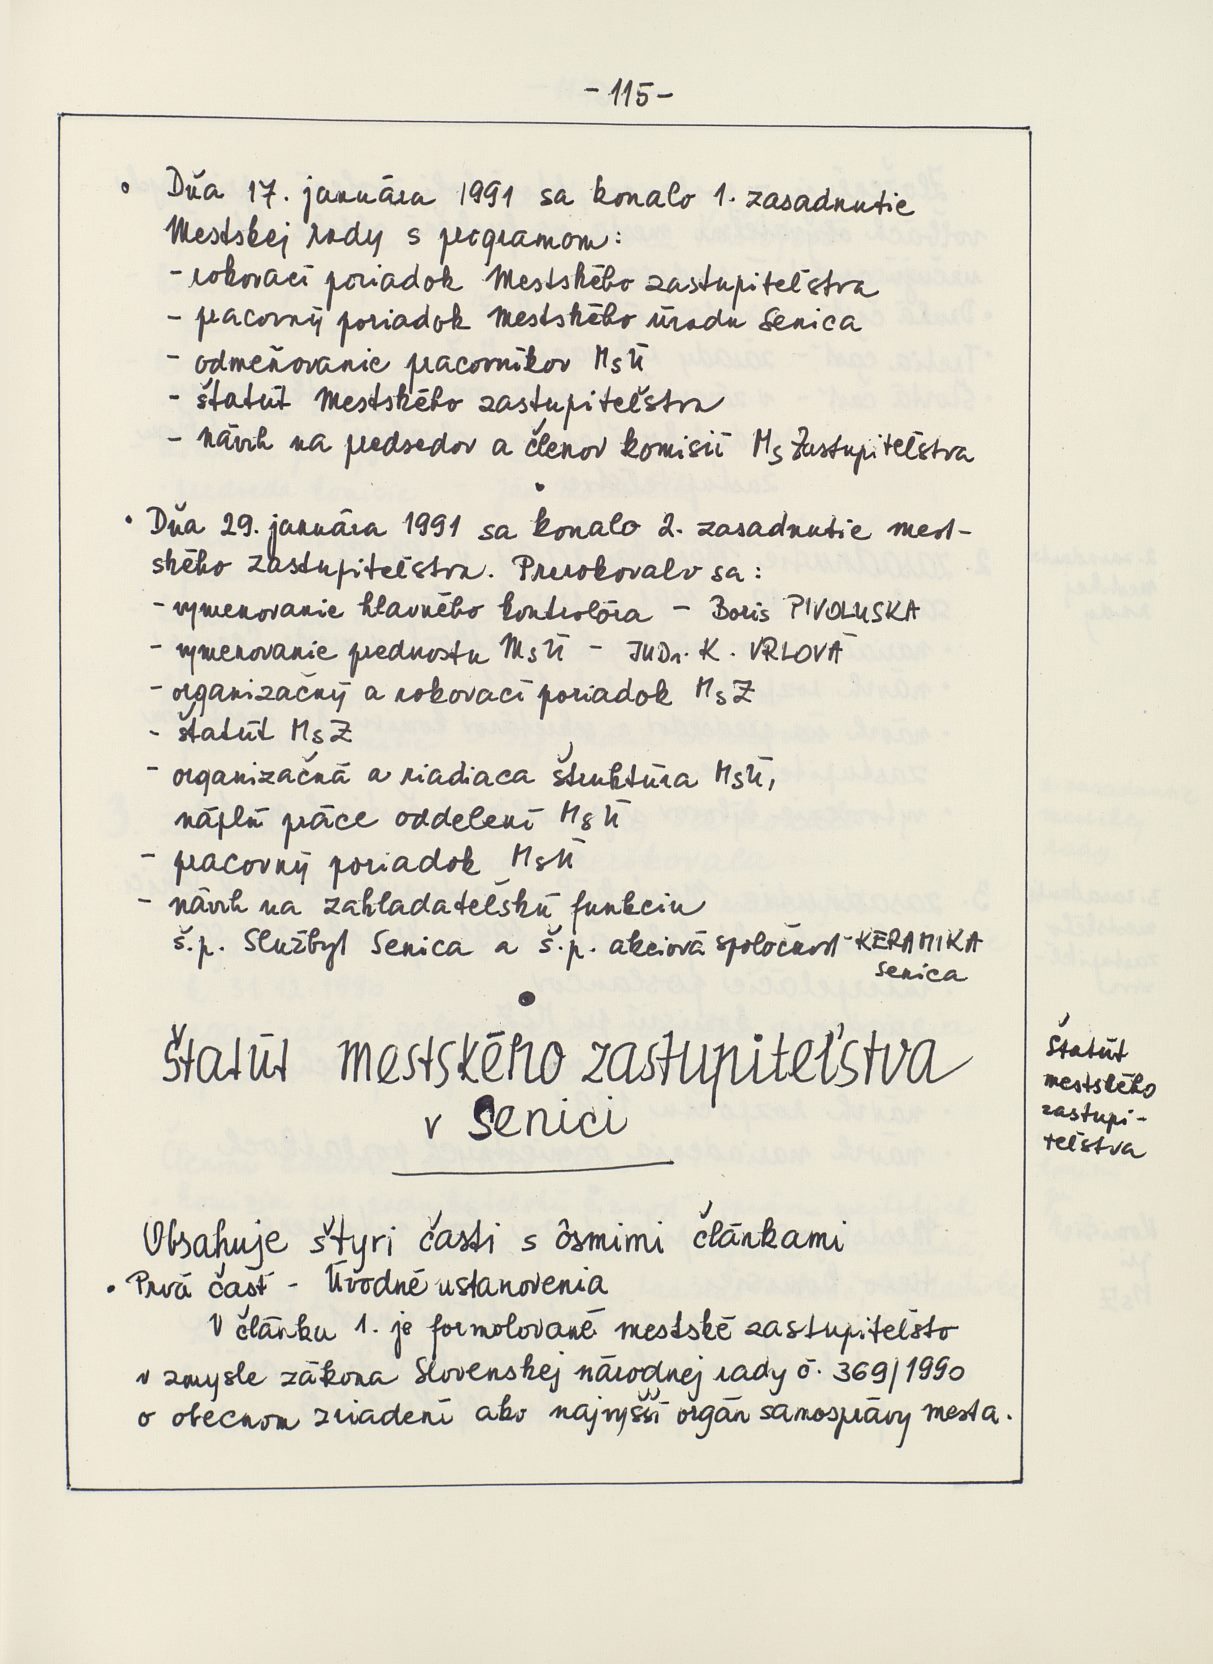 - 115 -
• Dňa 17. januára 1991 sa konalo 1. zasadnutie
Mestskej rady s programom:
- rokovací poriadok Mestského zastupiteľstva
- pracovný poriadok Mestského úradu Senica
- odmeňovanie pracovníkov MsÚ
- štatút Mestského zastupiteľstva
- návrh na predsedov a členov komisií Ms Zastupiteľstva
•
• Dňa 29. januára 1991 sa konalo 2. zasadnutie mest-
ského zastupiteľstva. Prerokovalo sa:
- vymenovanie hlavného kontrolóra - Boris PIVOLUSKA
- vymenovanie prednostu MsÚ - JUDr. K. VRLOVÁ
- organizačný a rokovací poriadok MsZ
- štatút MsZ
- organizačná a riadiaca štruktúra MsÚ,
náplň práce oddelení MsÚ
- pracovný poriadok MsÚ
- návrh na zakladateľskú funkciu
š.p. Služby Senica a š.p. akciová spoločnosť - KERAMIKA
Senica
•
Štatút mestského zastupiteľstva
v Senici
Štatút
mestského
zastupi-
teľstva
Obsahuje štyri časti s ôsmimi článkami
• Prvá časť - Úvodné ustanovenia
V článku 1. je formolované mestské zastupiteľsto
v zmysle zákona Slovenskej národnej rady č. 369/1990
o obecnom zriadení ako najvyšší orgán samosprávy mesta.